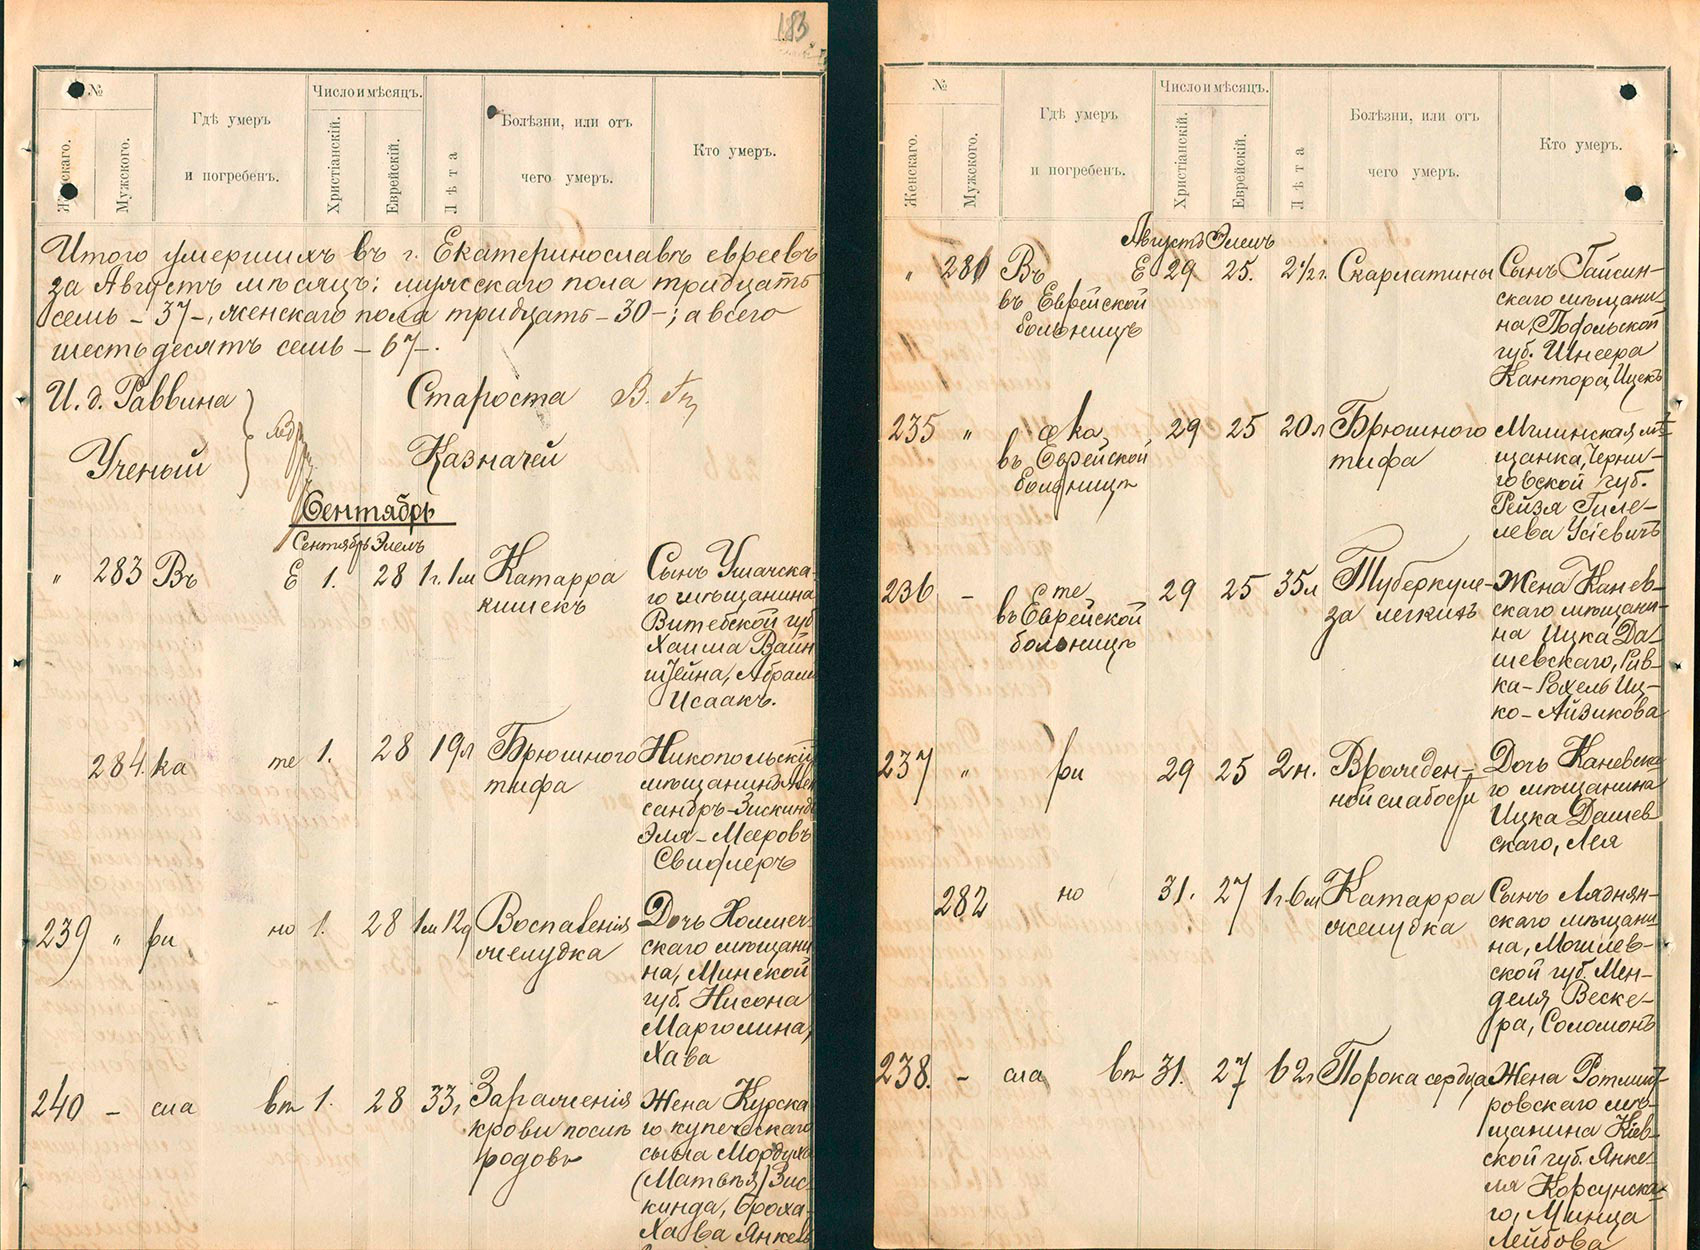 183
№
Женскаго.
Мужского.
Гдѣ умеръ
и погребенъ.
Число и мѣсяцъ.
Христіанскій.
Еврейскій.
Лѣта
Болѣзни, или отъ
чего умеръ.
Кто умеръ.
Итого умершихъ въ г. Екатеринославѣ евреевъ
за Августъ мѣсяцъ: мужскаго пола тридцать
семь – 37 –, женскаго пола тридцать – 30 –; а всего
шестьдесятъ семь – 67 –.
И. д. Раввина
Староста
Ученый
Казначей
Сентябрь
Сентябрь Элелъ
" 283 Въ Е 1. 28 1г. 1м
Катарра
кишекъ
Сынъ Ушачска-
го мѣщанина
Витебской губ
Хаима Вайн
штейна, Абрам
Исаакъ.
284. ка те 1. 28 19л
Брюшного
тифа
Никопольскій
мѣщанинъ Алек
сандръ-Зискинд
Эля-Мееровъ
Свифлеръ
239 " ри но 1. 28 1м 12д
Воспаленія
желудка
Дочь Холмеч-
скаго мѣщани
на, Минской
губ. Нисона
Марголина,
Хава
240 – сла вѣ 1. 28 33л
Зараженія
крови послѣ
родовъ
Жена Курска-
го купеческаго
сына Мордуха
(Матвѣя) Зис-
кинда, Броха-
Хава Янкел
№
Женскаго.
Мужского.
Гдѣ умеръ
и погребенъ.
Число и мѣсяцъ.
Христіанскій.
Еврейскій.
Лѣта
Болѣзни, или отъ
чего умеръ.
Кто умеръ.
Августъ Элелъ
" 281 Въ Е 29 25. 2 1/2 г.
въ Еврейской
больницѣ
Скарлатины
Сынъ Гайсин-
скаго мѣщани-
на, Подольской
губ. Шнеера
Кантора, Ицекъ
235 " ка, 29 25 20л
въ Еврейской
больницѣ
Брюшного
тифа
Мглинская мѣ-
щанка, Черни-
говской губ.
Рейзя Гиле-
лева Усіевичъ
236 – Е те 29 25 35л
въ Еврейской
больницѣ
Туберкуле-
за легкихъ
Жена Канев-
скаго мѣщани-
на Ицка Да-
шевскаго, Рив-
ка-Рохель Иц-
ко-Айзикова
237 " ри 29 25 2н.
Врожден-
ной слабости
Дочь Каневска-
го мѣщанина
Ицка Дашев
скаго, Лея
282 но 31. 27 1г 6м
Катарра
желудка
Сынъ Ляднян-
скаго мѣщани
на, Могилев-
ской губ. Мен-
деля Веске-
ра, Соломонъ
238. – сла вѣ 31. 27 62л
Порока сердца
Жена Ротмист-
ровскаго мѣ-
щанина Кіев-
ской губ. Янке-
ля Корсунска-
го, Минца
Лейбова